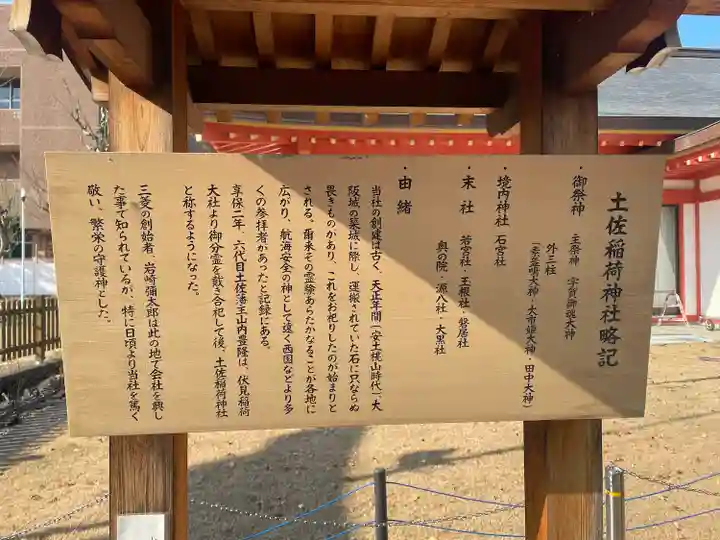 土佐稲荷神社略記
・御祭神　主祭神　宇賀御魂大神
外三柱
(素盞嗚大神・大市姫大神・田中大神)
・境内神社　石宮社
・末社　若宮社・玉根社・磐居社
奥の院・源八社・大黒社
・由緒
当社の創建は古く、天正年間(安土桃山時代)、大
阪城の築城に際し、運搬されていた石に只ならぬ
畏きものがあり、これをお祀りしたのが始まりと
される。爾来その霊験あらたかなることが各地に
広がり、航海安全の神として遠く西国などより多
くの参拝者があったと記録にある。
享保二年、六代目土佐藩主山内豊隆は、伏見稲荷
大社より御分霊を戴き合祀して後、土佐稲荷神社
と称するようになった。
三菱の創始者、岩崎彌太郎は此の地で会社を興し
た事で知られているが、特に日頃より当社を篤く
敬い、繁栄の守護神とした。